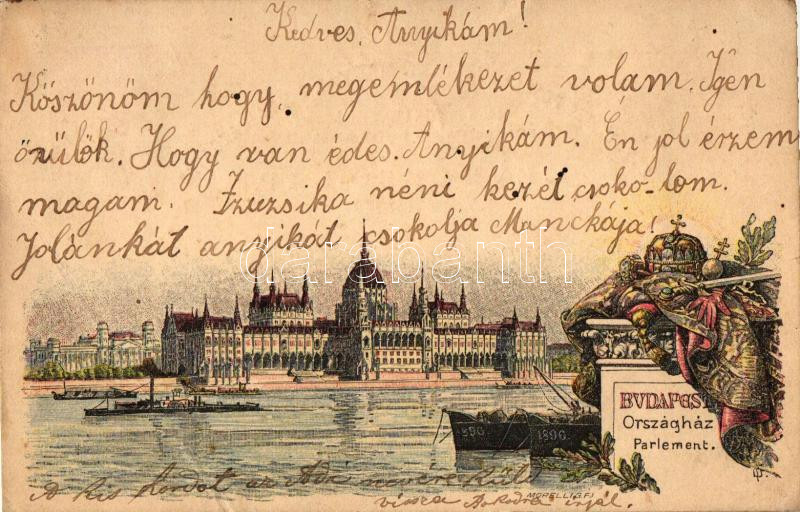 Kedves Anyikám!
Köszönöm hogy megemlékezet volam. Igen
örülök. Hogy van édes. Anyikám. Én jol érzem
magam. Zsuzsika néni kezét csoko-lom.
Jolánkát anyikát csokolja Manckája!
darabanth
BUDAPEST
Országház
Parlement.
1896
1896
MORELLI G.F.
A kis az Adi nevére
vissza írjál.